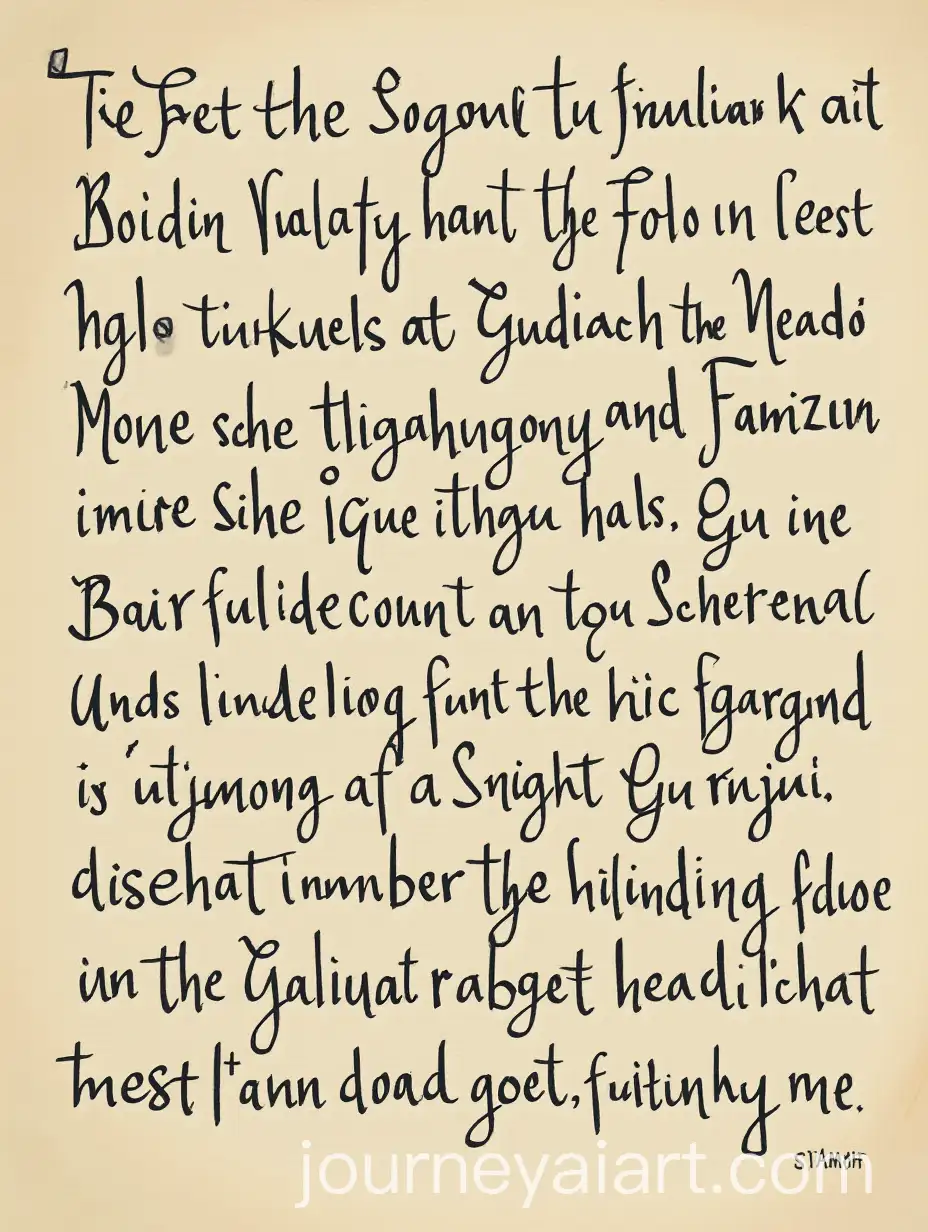 Tie Fet the Sogoul tu fruliar k ait
Boidin Vualaty hant the Folo in leest
hglo tirkuels at Gudiach the Neado
Mone sche thigahugony and Famizun
imire Sihe ique ithgu hals. Gu ine
Bair fulide count an tqu Scherenal
Unds lindelioq funt the hic fgargnd
is 'utjmong af a Snight Gu rnjui.
disehat innmber the hilinding fdioe
iin the Galiyat rabget headilchat
tmest l'ann doad goet, fuitinhy me.
STAMHT
journeyaiart.com